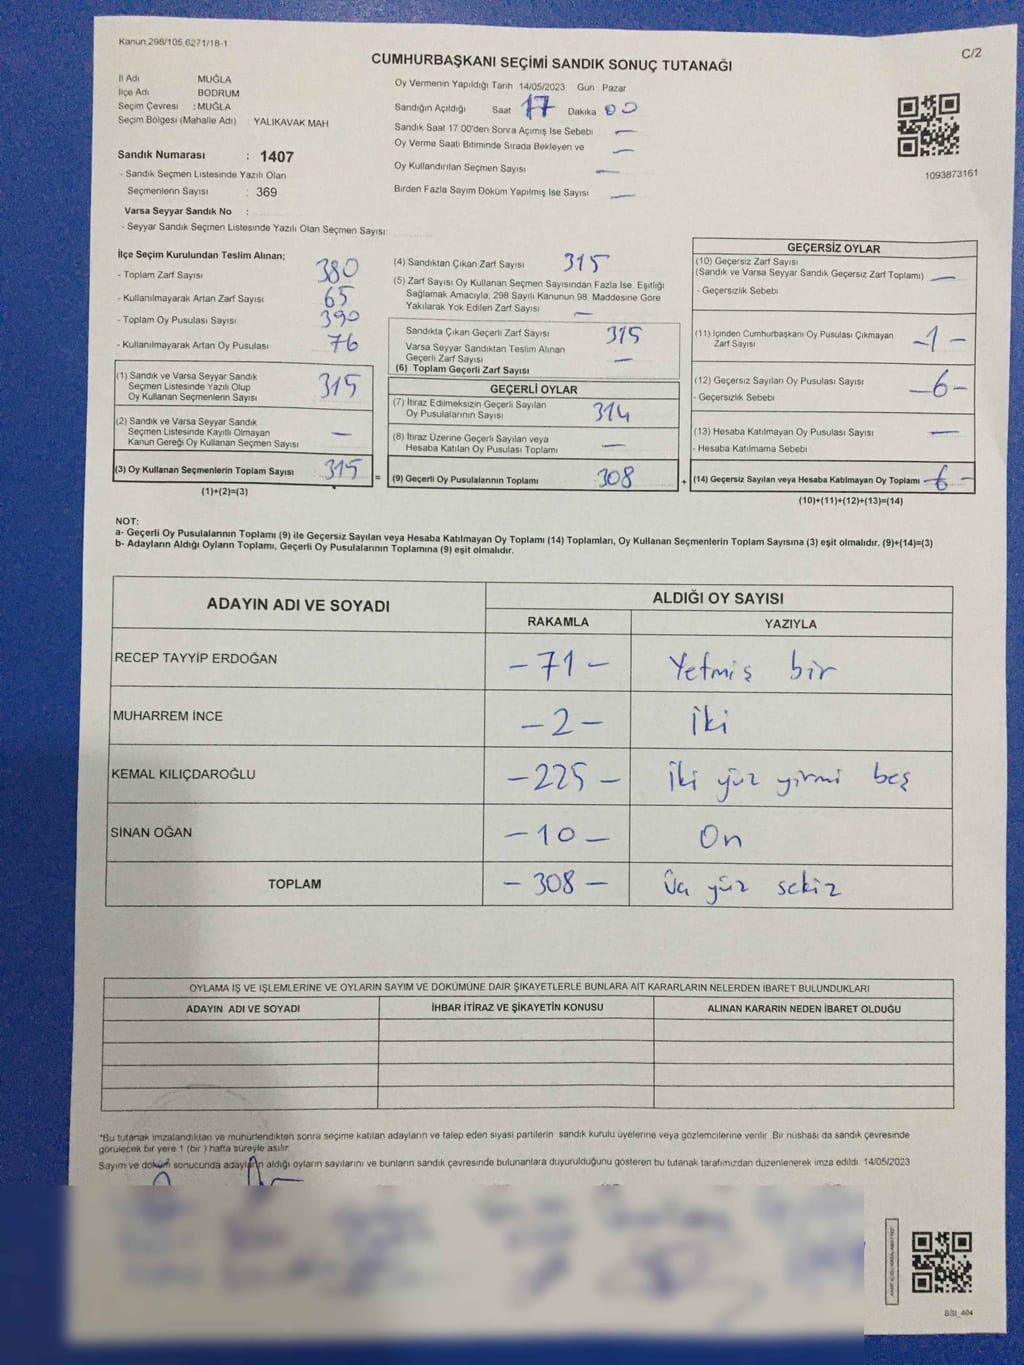 Kanun 298/105,6271/18-1
C/2
CUMHURBAŞKANI SEÇİMİ SANDIK SONUÇ TUTANAĞI
İl Adı MUĞLA
İlçe Adı BODRUM
Seçim Çevresi : MUĞLA
Seçim Bölgesi (Mahalle Adı) : YALIKAVAK MAH
Sandık Numarası : 1407
- Sandık Seçmen Listesinde Yazılı Olan
Seçmenlerin Sayısı : 369
Varsa Seyyar Sandık No :
- Seyyar Sandık Seçmen Listesinde Yazılı Olan Seçmen Sayısı:
Oy Vermenin Yapıldığı Tarih 14/05/2023 Gün Pazar
Sandığın Açıldığı Saat 17 Dakika 00
Sandık Saat 17:00'den Sonra Açımış İse Sebebi —
Oy Verme Saati Bitiminde Sırada Bekleyen ve —
Oy Kullandırılan Seçmen Sayısı —
Birden Fazla Sayım Döküm Yapılmış İse Sayısı —
1093873161
İlçe Seçim Kurulundan Teslim Alınan;
- Toplam Zarf Sayısı 380
- Kullanılmayarak Artan Zarf Sayısı 65
- Toplam Oy Pusulası Sayısı 390
- Kullanılmayarak Artan Oy Pusulası 76
(1) Sandık ve Varsa Seyyar Sandık
Seçmen Listesinde Yazılı Olup
Oy Kullanan Seçmenlerin Sayısı 315
(2) Sandık ve Varsa Seyyar Sandık
Seçmen Listesinde Kayıtlı Olmayan
Kanun Gereği Oy Kullanan Seçmen Sayısı —
(3) Oy Kullanan Seçmenlerin Toplam Sayısı 315
(1)+(2)=(3)
=
(4) Sandıktan Çıkan Zarf Sayısı 315
(5) Zarf Sayısı Oy Kullanan Seçmen Sayısından Fazla İse, Eşitliği
Sağlamak Amacıyla, 298 Sayılı Kanunun 98. Maddesine Göre
Yakılarak Yok Edilen Zarf Sayısı —
Sandıkta Çıkan Geçerli Zarf Sayısı 315
Varsa Seyyar Sandıktan Teslim Alınan
Geçerli Zarf Sayısı —
(6) Toplam Geçerli Zarf Sayısı
GEÇERLİ OYLAR
(7) İtiraz Edilmeksizin Geçerli Sayılan
Oy Pusulalarının Sayısı 314
(8) İtiraz Üzerine Geçerli Sayılan veya
Hesaba Katılan Oy Pusulası Toplamı —
(9) Geçerli Oy Pusulalarının Toplamı 308
+
GEÇERSİZ OYLAR
(10) Geçersiz Zarf Sayısı
(Sandık ve Varsa Seyyar Sandık Geçersiz Zarf Toplamı) —
- Geçersizlik Sebebi
(11) İçinden Cumhurbaşkanı Oy Pusulası Çıkmayan
Zarf Sayısı -1-
(12) Geçersiz Sayılan Oy Pusulası Sayısı -6-
- Geçersizlik Sebebi
(13) Hesaba Katılmayan Oy Pusulası Sayısı —
- Hesaba Katılmama Sebebi
(14) Geçersiz Sayılan veya Hesaba Katılmayan Oy Toplamı -6-
(10)+(11)+(12)+(13)=(14)
NOT:
a- Geçerli Oy Pusulalarının Toplamı (9) ile Geçersiz Sayılan veya Hesaba Katılmayan Oy Toplamı (14) Toplamları, Oy Kullanan Seçmenlerin Toplam Sayısına (3) eşit olmalıdır. (9)+(14)=(3)
b- Adayların Aldığı Oyların Toplamı, Geçerli Oy Pusulalarının Toplamına (9) eşit olmalıdır.
ADAYIN ADI VE SOYADI
ALDIĞI OY SAYISI
RAKAMLA YAZIYLA
RECEP TAYYİP ERDOĞAN -71- Yetmiş bir
MUHARREM İNCE -2- İki
KEMAL KILIÇDAROĞLU -225- İki yüz yirmi beş
SİNAN OĞAN -10- On
TOPLAM -308- Üç yüz sekiz
OYLAMA İŞ VE İŞLEMLERİNE VE OYLARIN SAYIM VE DÖKÜMÜNE DAİR ŞİKAYETLERLE BUNLARA AİT KARARLARIN NELERDEN İBARET BULUNDUKLARI
ADAYIN ADI VE SOYADI İHBAR İTİRAZ VE ŞİKAYETİN KONUSU ALINAN KARARIN NEDEN İBARET OLDUĞU
*Bu tutanak imzalandıktan ve mühürlendikten sonra seçime katılan adayların ve talep eden siyasi partilerin sandık kurulu üyelerine veya gözlemcilerine verilir. Bir nüshası da sandık çevresinde
görülecek bir yere 1 (bir ) hafta süreyle asılır.
Sayım ve döküm sonucunda adayların aldığı oyların sayılarını ve bunların sandık çevresinde bulunanlara duyurulduğunu gösteren bu tutanak tarafımızdan düzenlenerek imza edildi. 14/05/2023
SSI_404